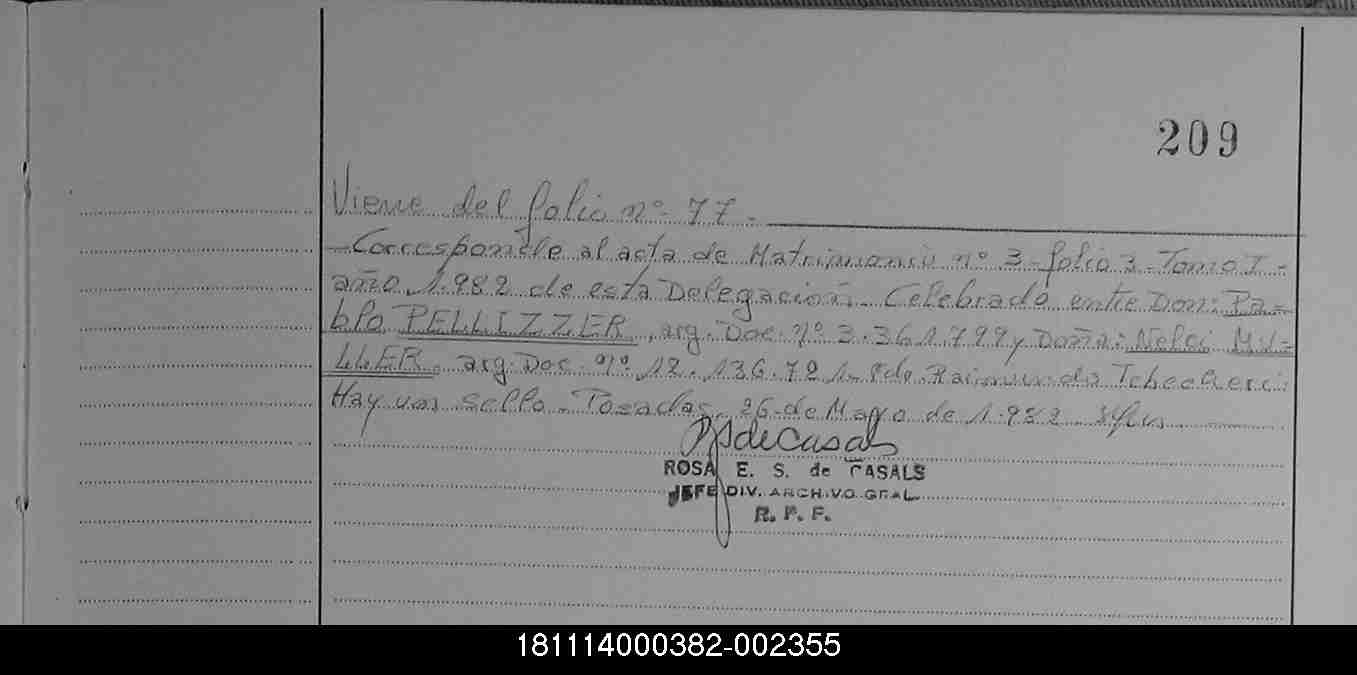 209
Viene del folio nº 77.
-Corresponde al acta de Matrimonio nº 3-folio 3-Tomo I-
año 1.982 de esta Delegación. Celebrado entre Don: Pa=
blo PELLIZZER, arg. Doc. nº 3.361.799 y Doña: Nelci MU=
LLER. arg. Doc. nº 12.136.721- Fdo. Raimundo
Hay un sello - Posadas, 26 de Mayo de 1.982.
ROSA E. S. de CASALS
JEFE DIV. ARCHIVO GRAL
R. P. F.
181114000382-002355